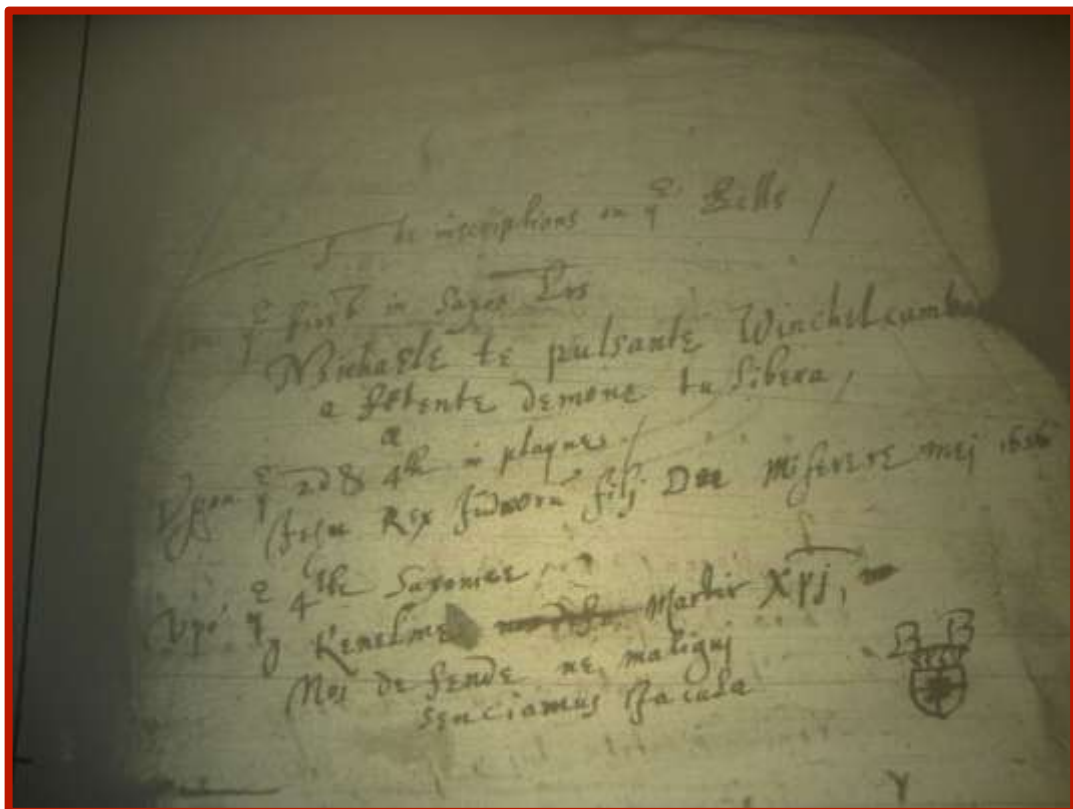 The inscriptions on ye Bells /
on ye first in Saxon Lrs
Michaele te pulsante Winchelcumba
a petente demone tu libera,
Upon ye 2d & 4th in playnes /
Jesu Rex Judworu filj Dee Miserere mej 1636
Upō ye 4th Saxonice,
O Kenelme Martir XPJ,
Nos defende ne, malignj
senciamus Jacula
B B